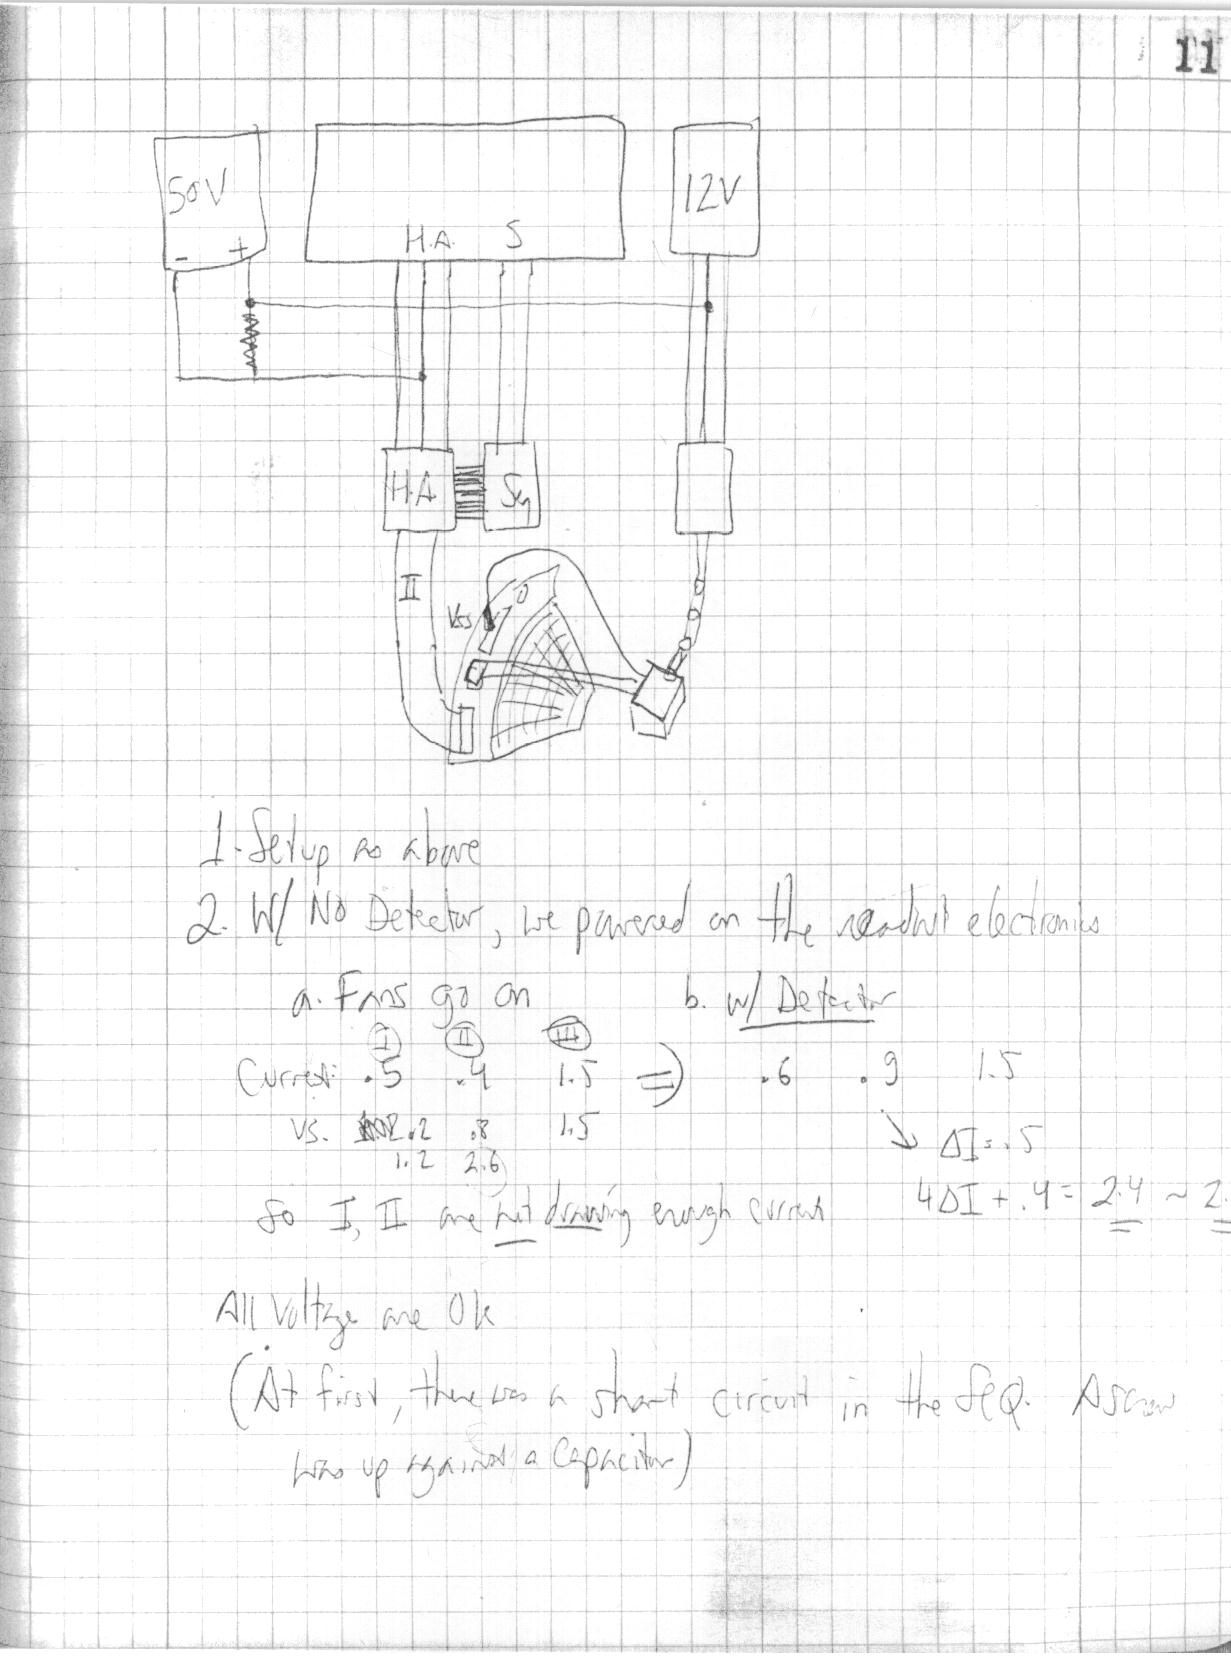 11
50V
12V
- +
H.A. S
H.A
Seq
II
Vss
1. Setup as above
2. W/ No Detector, we powered on the readout electronics
a. Fans go on b. w/ Detector
I II III
Current: .5 .4 1.5 ⇒ .6 .9 1.5
vs. .2 .8 1.5
↘ ΔI = .5
1.2 2.6
4ΔI + .4 = 2.4 ~ 2.
So I, II are not drawing enough current
All Voltage are OK
(At first, there was a short circuit in the SEQ. A screw
was up against a capacitor)